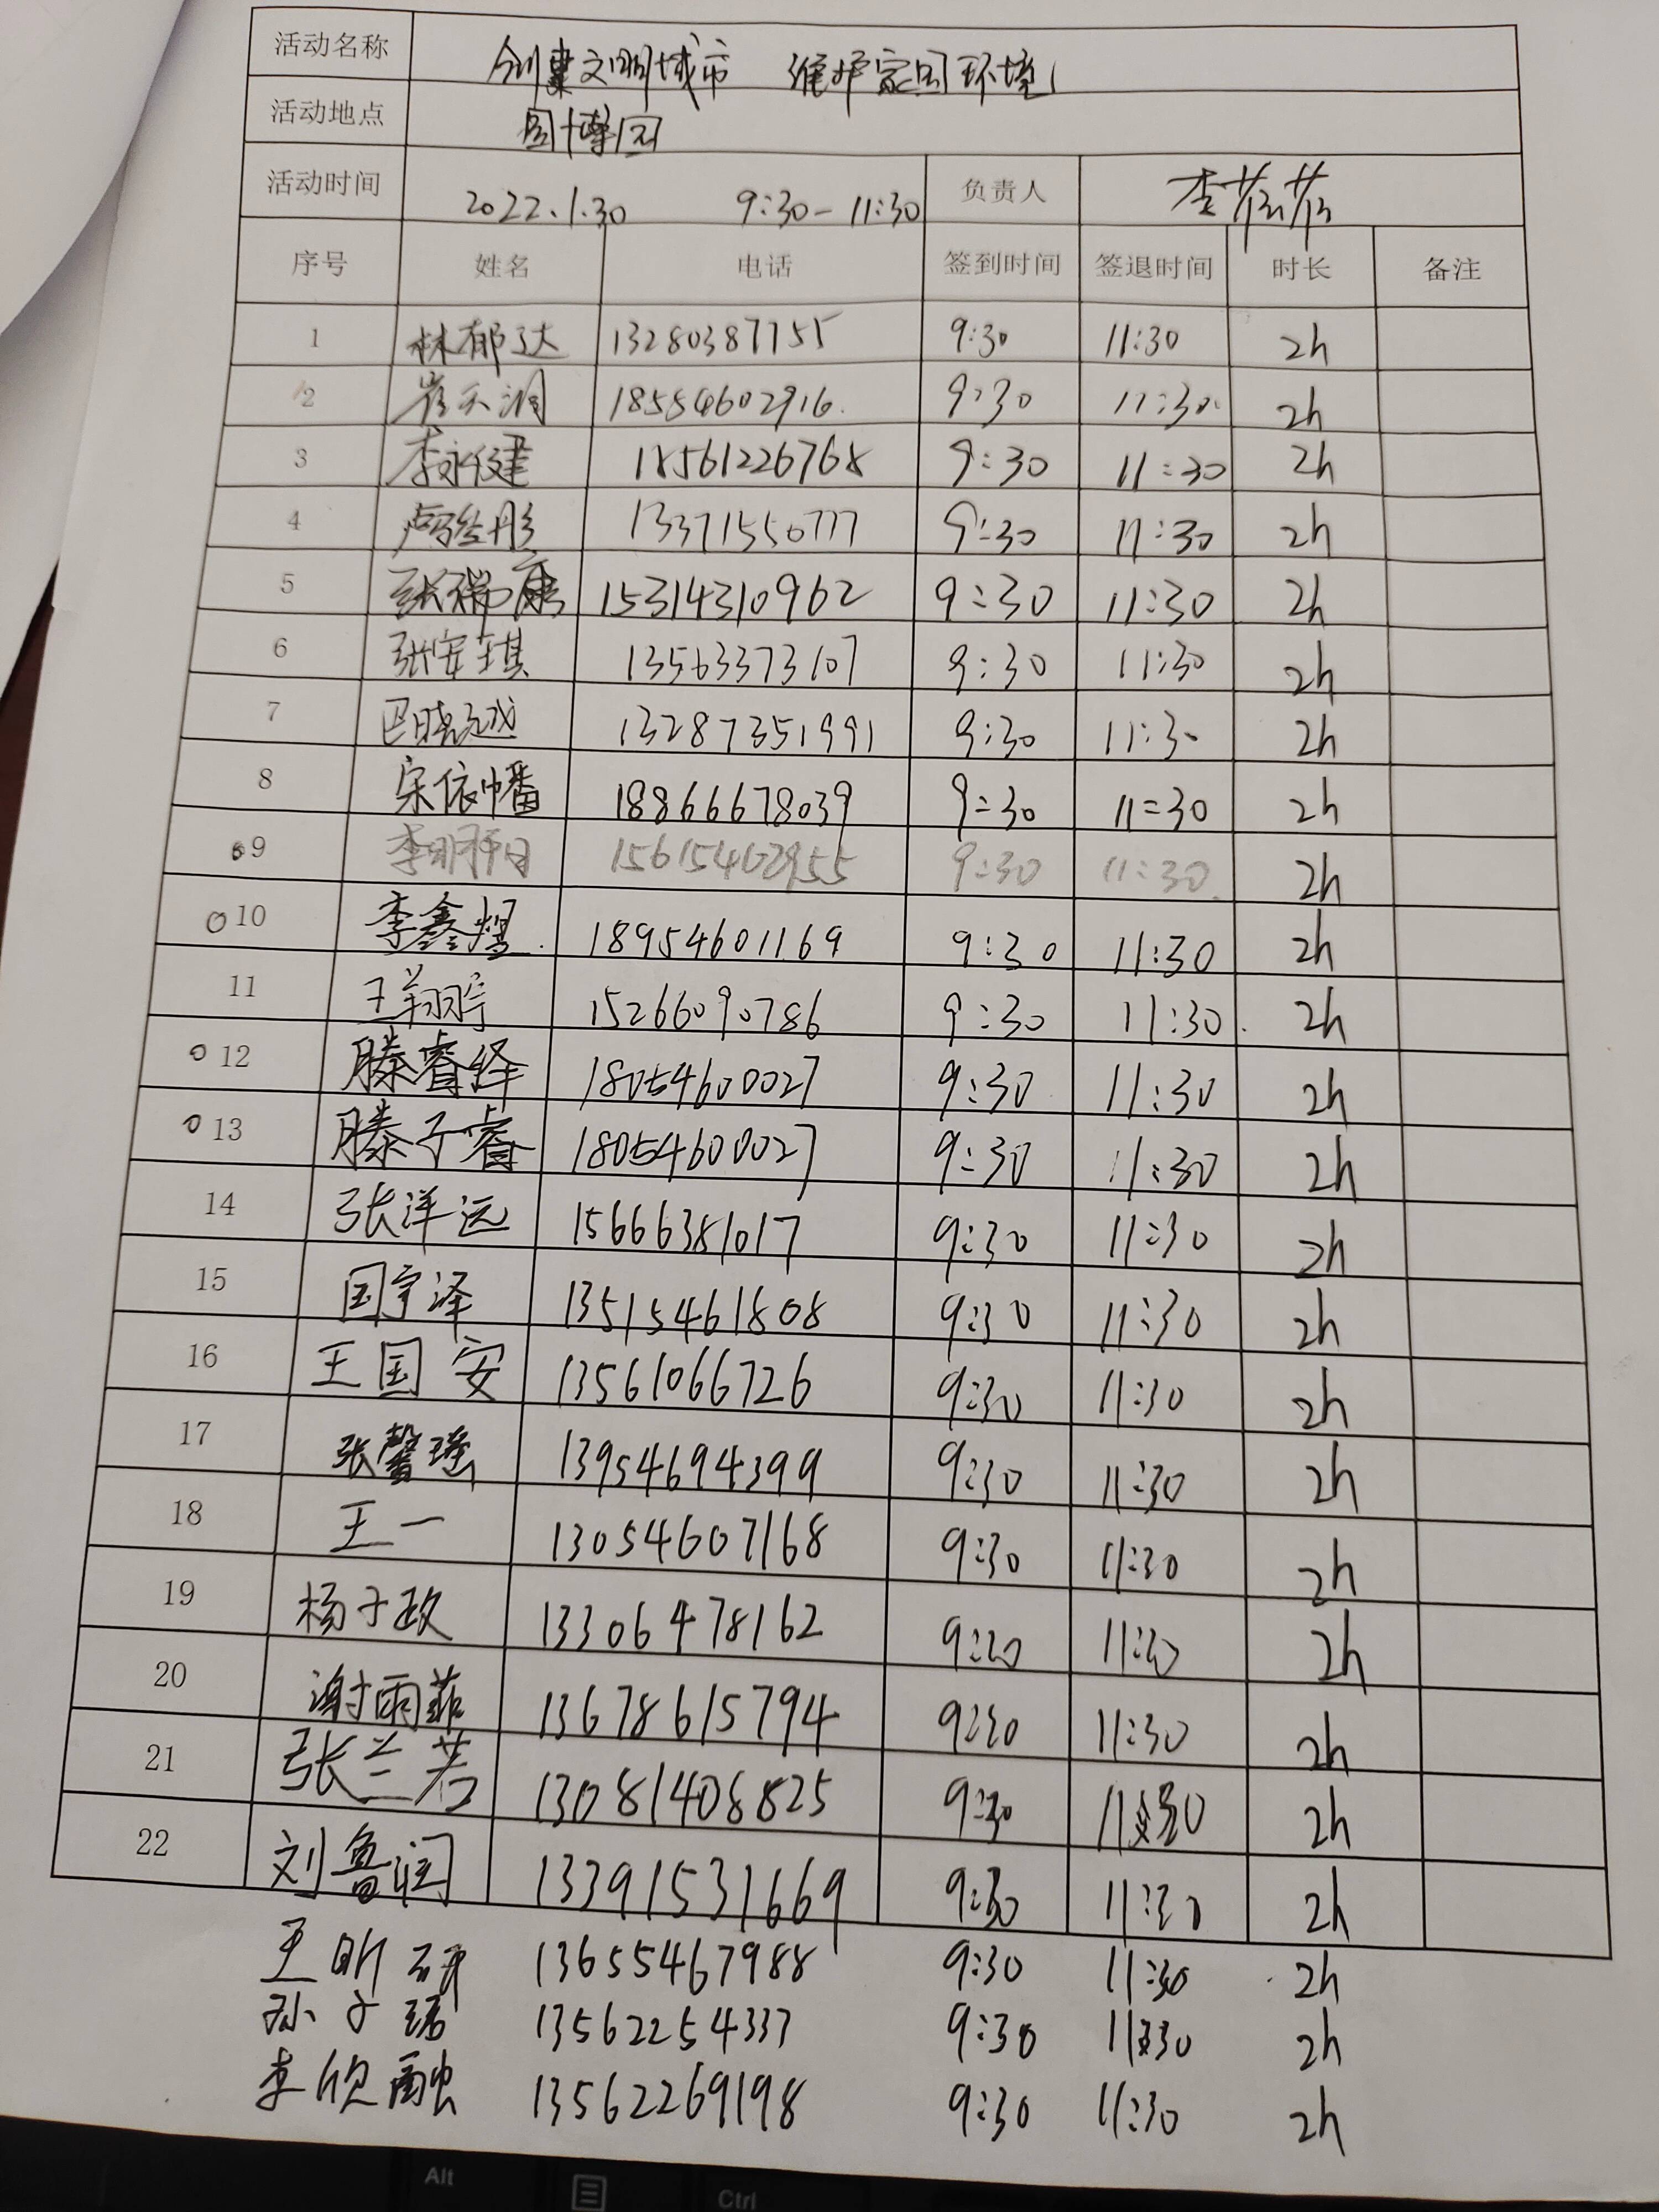 活动名称 创建文明城市 维护家园环境
活动地点 园博园
活动时间 2022.1.30 9:30-11:30 负责人 李芸芸
序号 姓名 电话 签到时间 签退时间 时长 备注
1 林郁达 13280387755 9:30 11:30 2h
2 崔天润 18554602916. 9:30 11:30 2h
3 李永健 18561226768 9:30 11:30 2h
4 13371550777 9:30 11:30 2h
5 张瑞康 15314310962 9:30 11:30 2h
6 张安琪 13563373107 9:30 11:30 2h
7 巴晓成 13287351991 9:30 11:30 2h
8 宋依幡 18866678039 9:30 11:30 2h
9 15615462955 9:30 11:30 2h
10 李鑫煜 18954601169 9:30 11:30 2h
11 王翔宇 15266090786 9:30 11:30 2h
12 滕睿绎 18054600027 9:30 11:30 2h
13 滕子睿 18054600027 9:30 11:30 2h
14 张洋远 15666381017 9:30 11:30 2h
15 国宇泽 13515461808 9:30 11:30 2h
16 王国安 13561066726 9:30 11:30 2h
17 张馨瑶 13954694399 9:30 11:30 2h
18 王一 13054607168 9:30 11:30 2h
19 杨子政 13306478162 9:30 11:30 2h
20 谢雨菲 13678615794 9:30 11:30 2h
21 张兰若 13081408825 9:30 11:30 2h
22 刘鲁润 13391531669 9:30 11:30 2h
王昕研 13655467988 9:30 11:30 2h
孙子琦 13562254337 9:30 11:30 2h
李欣融 13562269198 9:30 11:30 2h
Alt Ctrl